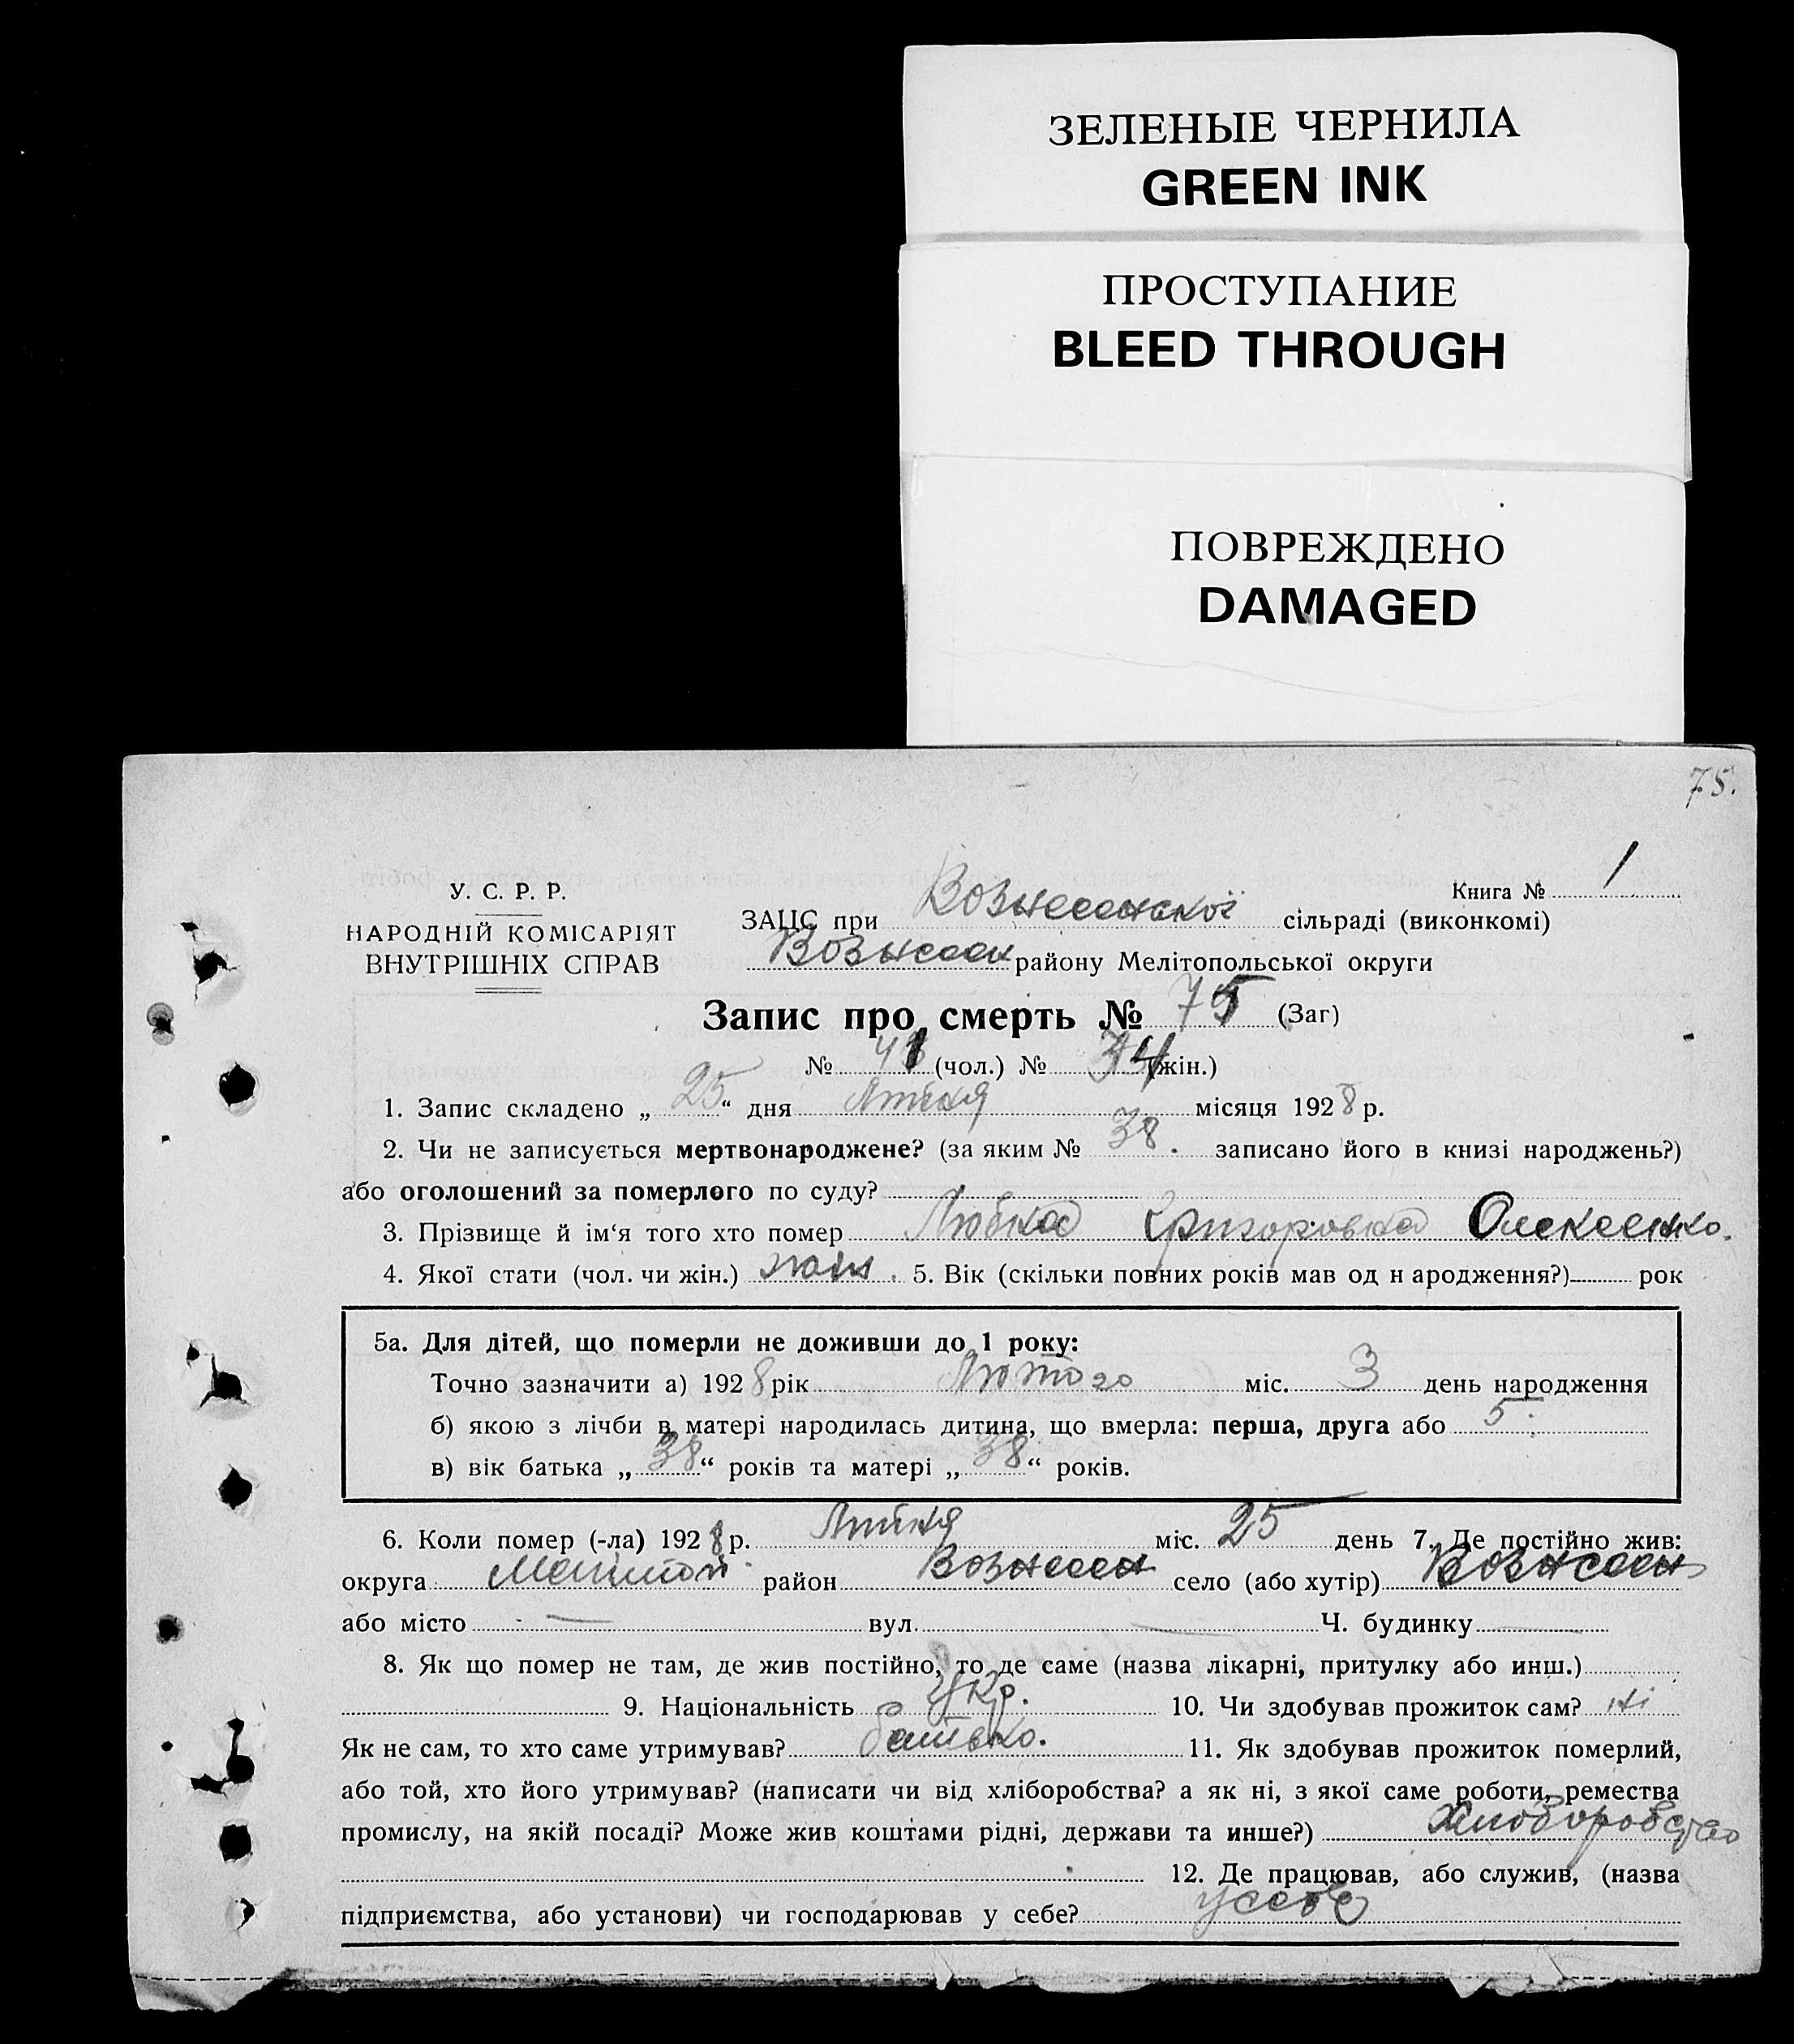 ЗЕЛЕНЫЕ ЧЕРНИЛА
GREEN INK
ПРОСТУПАНИЕ
BLEED THROUGH
ПОВРЕЖДЕНО
DAMAGED
75.
У. С. Р. Р.
НАРОДНІЙ КОМІСАРІЯТ
ВНУТРІШНІХ СПРАВ
Книга № 1
ЗАЦС при Вознесенської сільраді (виконкомі)
Вознесен району Мелітопольської округи
Запис про смерть № 75 (Заг)
№ 41 (чол.) № 34 (жін.)
1. Запис складено „ 25 “ дня Липня місяця 1928 р.
2. Чи не записується мертвонароджене? (за яким № 38. записано його в книзі народжень?)
або оголошений за померлого по суду?
3. Прізвище й ім‘я того хто помер Любка Григоровна Олексенко.
4. Якої стати (чол. чи жін.) жін. 5. Вік (скільки повних років мав од н ародження?) рок
5а. Для дітей, що померли не доживши до 1 року:
Точно зазначити а) 1928 рік Лютого міс. 3 день народження
б) якою з лічби в матері народилась дитина, що вмерла: перша, друга або 5.
в) вік батька „ 38 “ років та матері „ 38 “ років.
6. Коли помер (-ла) 1928 р. Липня міс. 25 день 7. Де постійно жив:
округа район Вознесен село (або хутір) Вознесен
або місто — вул. — Ч. будинку —
8. Як що помер не там, де жив постійно, то де саме (назва лікарні, притулку або инш.)
9. Національність Укр. 10. Чи здобував прожиток сам? ні
Як не сам, то хто саме утримував? батько. 11. Як здобував прожиток померлий,
або той, хто його утримував? (написати чи від хліборобства? а як ні, з якої саме роботи, ремества
промислу, на якій посаді? Може жив коштами рідні, держави та инше?) хліоборобство
12. Де працював, або служив, (назва
підприємства, або установи) чи господарював у себе? усебе